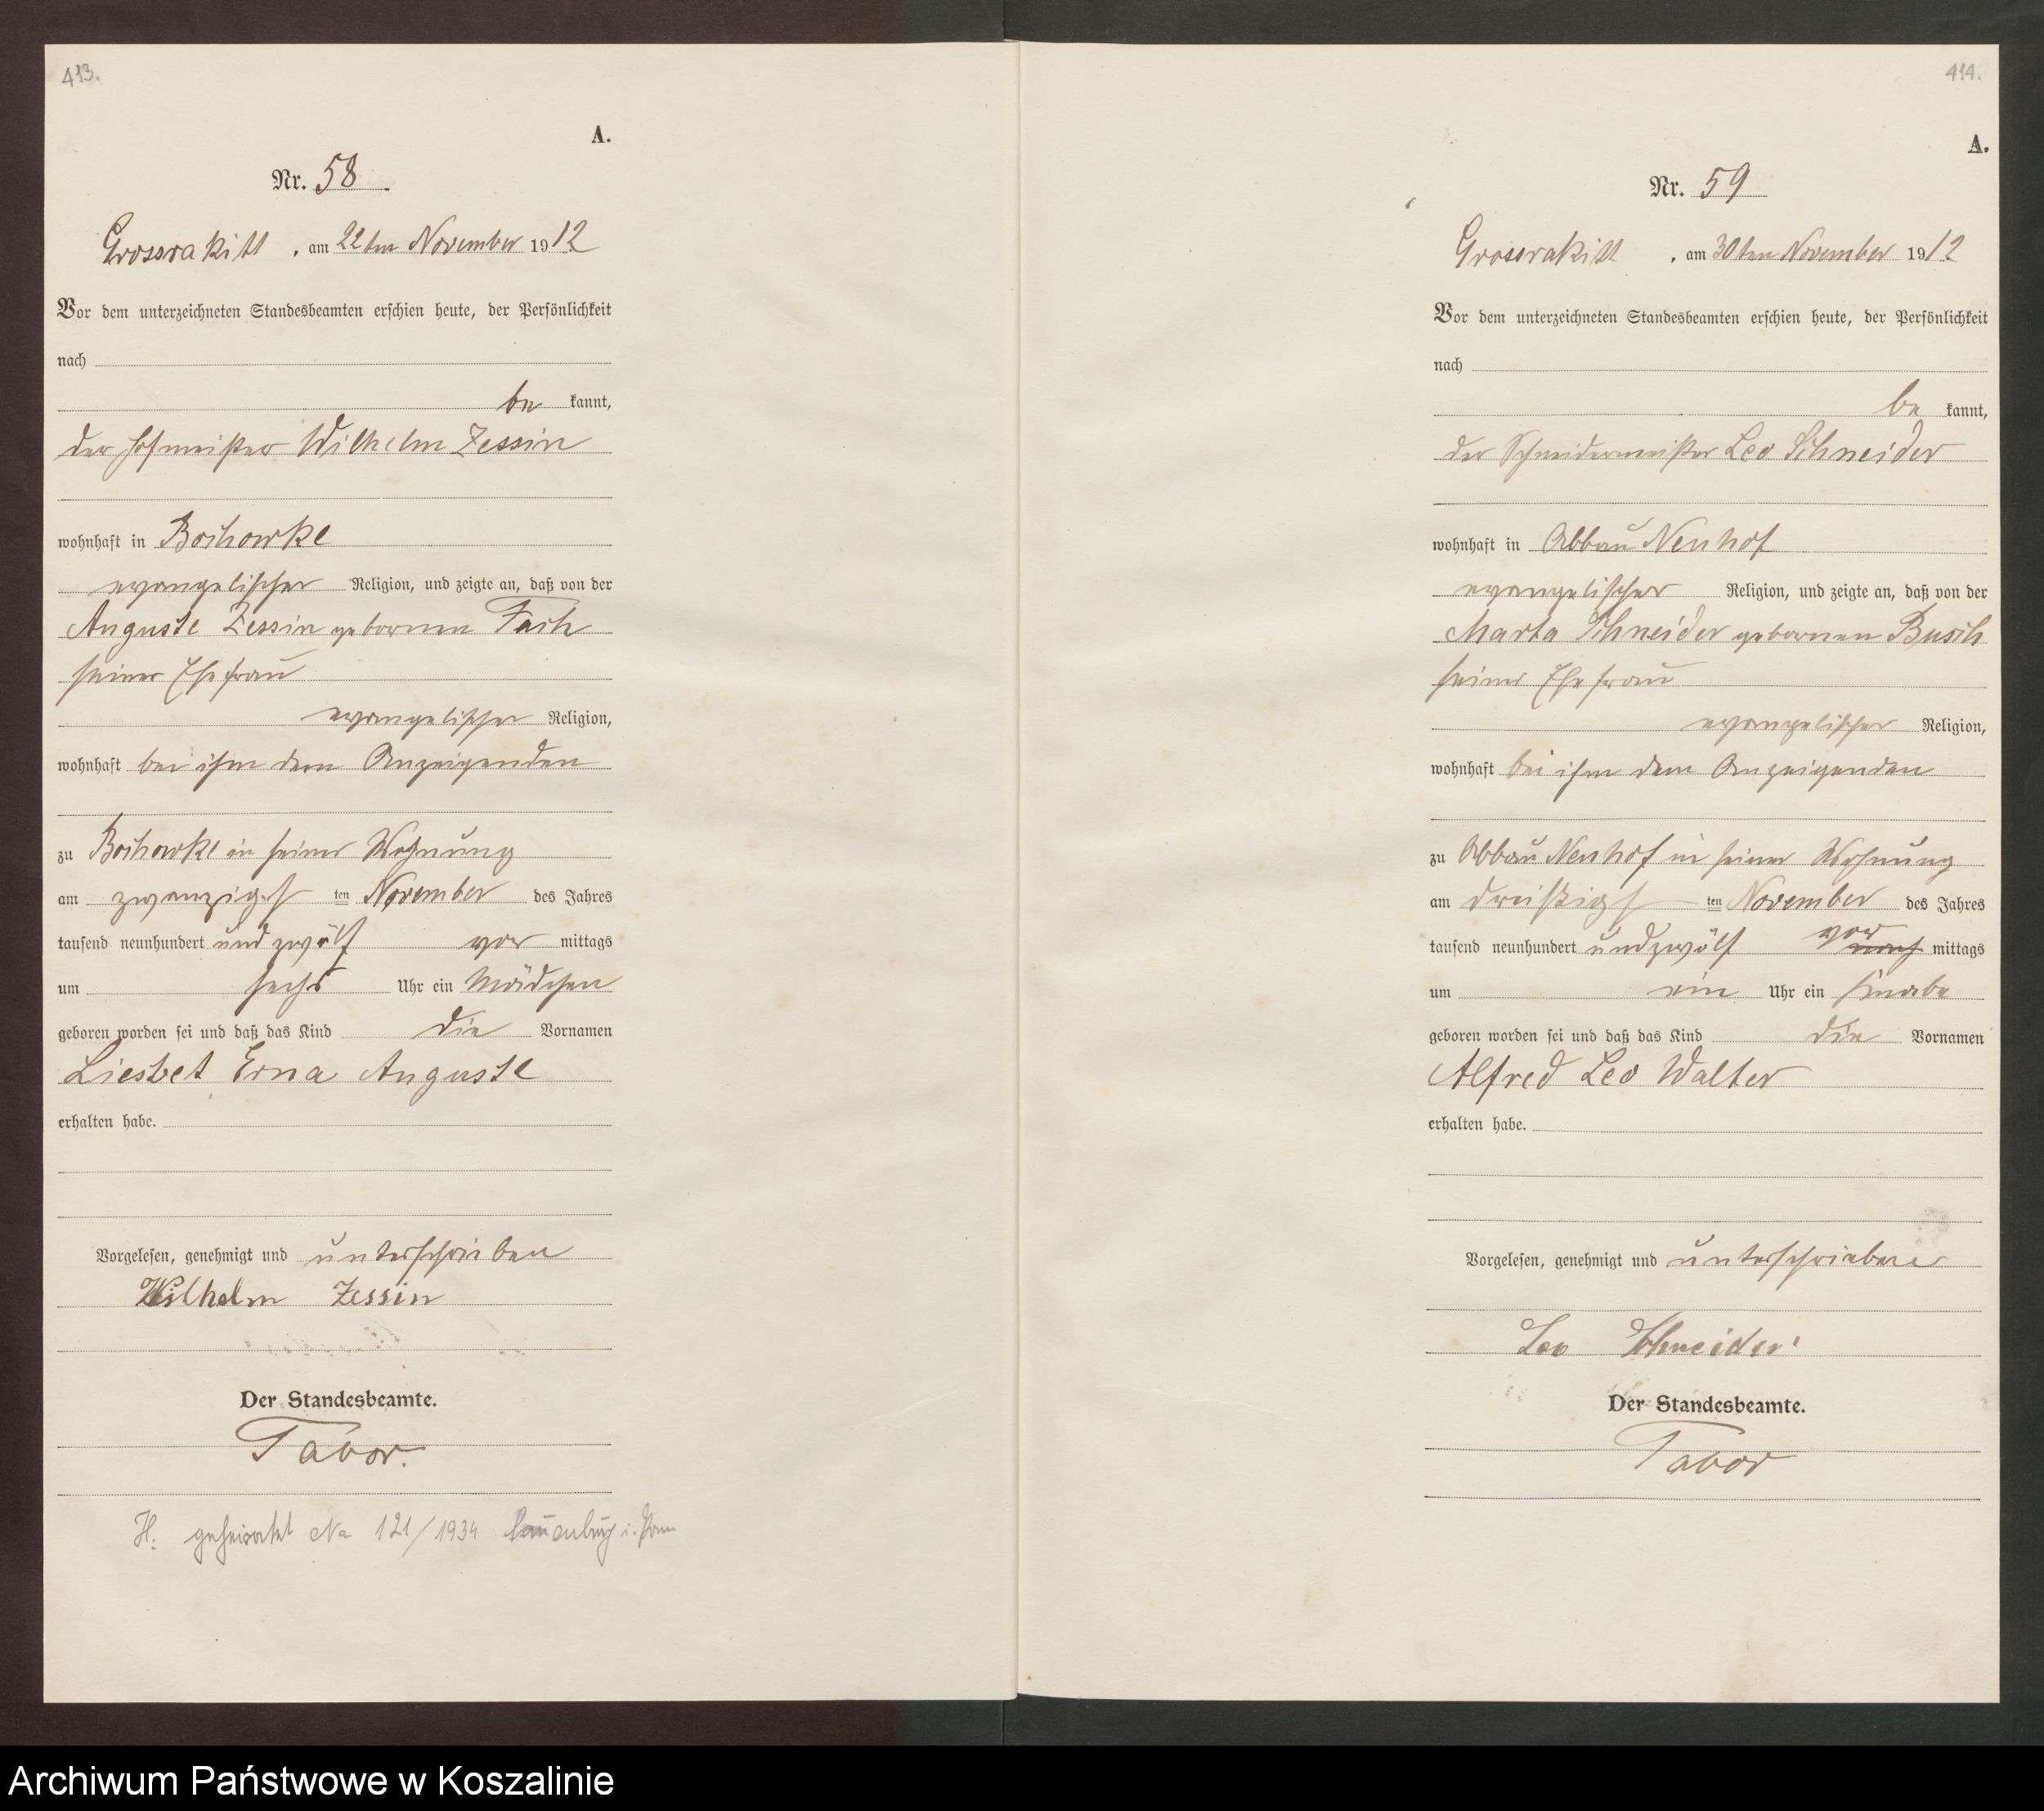 413.
A.
Nr. 58
Grossrakitt, am 22ten November 1912
Vor dem unterzeichneten Standesbeamten erschien heute, der Persönlichkeit
nach
be kannt,
der Hofmeister Wilhelm Zessin
wohnhaft in Bochowke
evangelischer Religion, und zeigte an, daß von der
Auguste Zessin gebornen Fach
seiner Ehefrau
evangelischer Religion,
wohnhaft bei ihm dem Anzeigenden
zu Bochowke in seiner Wohnung
am zwanzigst ten November des Jahres
tausend neunhundert und zwölf vor mittags
um sechs Uhr ein Mädchen
geboren worden sei und daß das Kind die Vornamen
Liesbet Erna Auguste
erhalten habe.
Vorgelesen, genehmigt und unterschrieben
Wilhelm Zessin
Der Standesbeamte.
Tabor.
H. geheiratet No 121/1934 Lauenburg i. Pom
414.
A.
Nr. 59
Grossrakitt, am 30ten November 1912
Vor dem unterzeichneten Standesbeamten erschien heute, der Persönlichkeit
nach
be kannt,
der Schneidermeister Leo Schneider
wohnhaft in Abbau Neuhof
evangelischer Religion, und zeigte an, daß von der
Marta Schneider gebornen Busch
seiner Ehefrau
evangelischer Religion,
wohnhaft bei ihm dem Anzeigenden
zu Abbau Neuhof in seiner Wohnung
am dreißigst ten November des Jahres
tausend neunhundert und zwölf vor nach mittags
um ein Uhr ein Knabe
geboren worden sei und daß das Kind die Vornamen
Alfred Leo Walter
erhalten habe.
Vorgelesen, genehmigt und unterschrieben
Leo Schneider
Der Standesbeamte.
Tabor
Archiwum Państwowe w Koszalinie